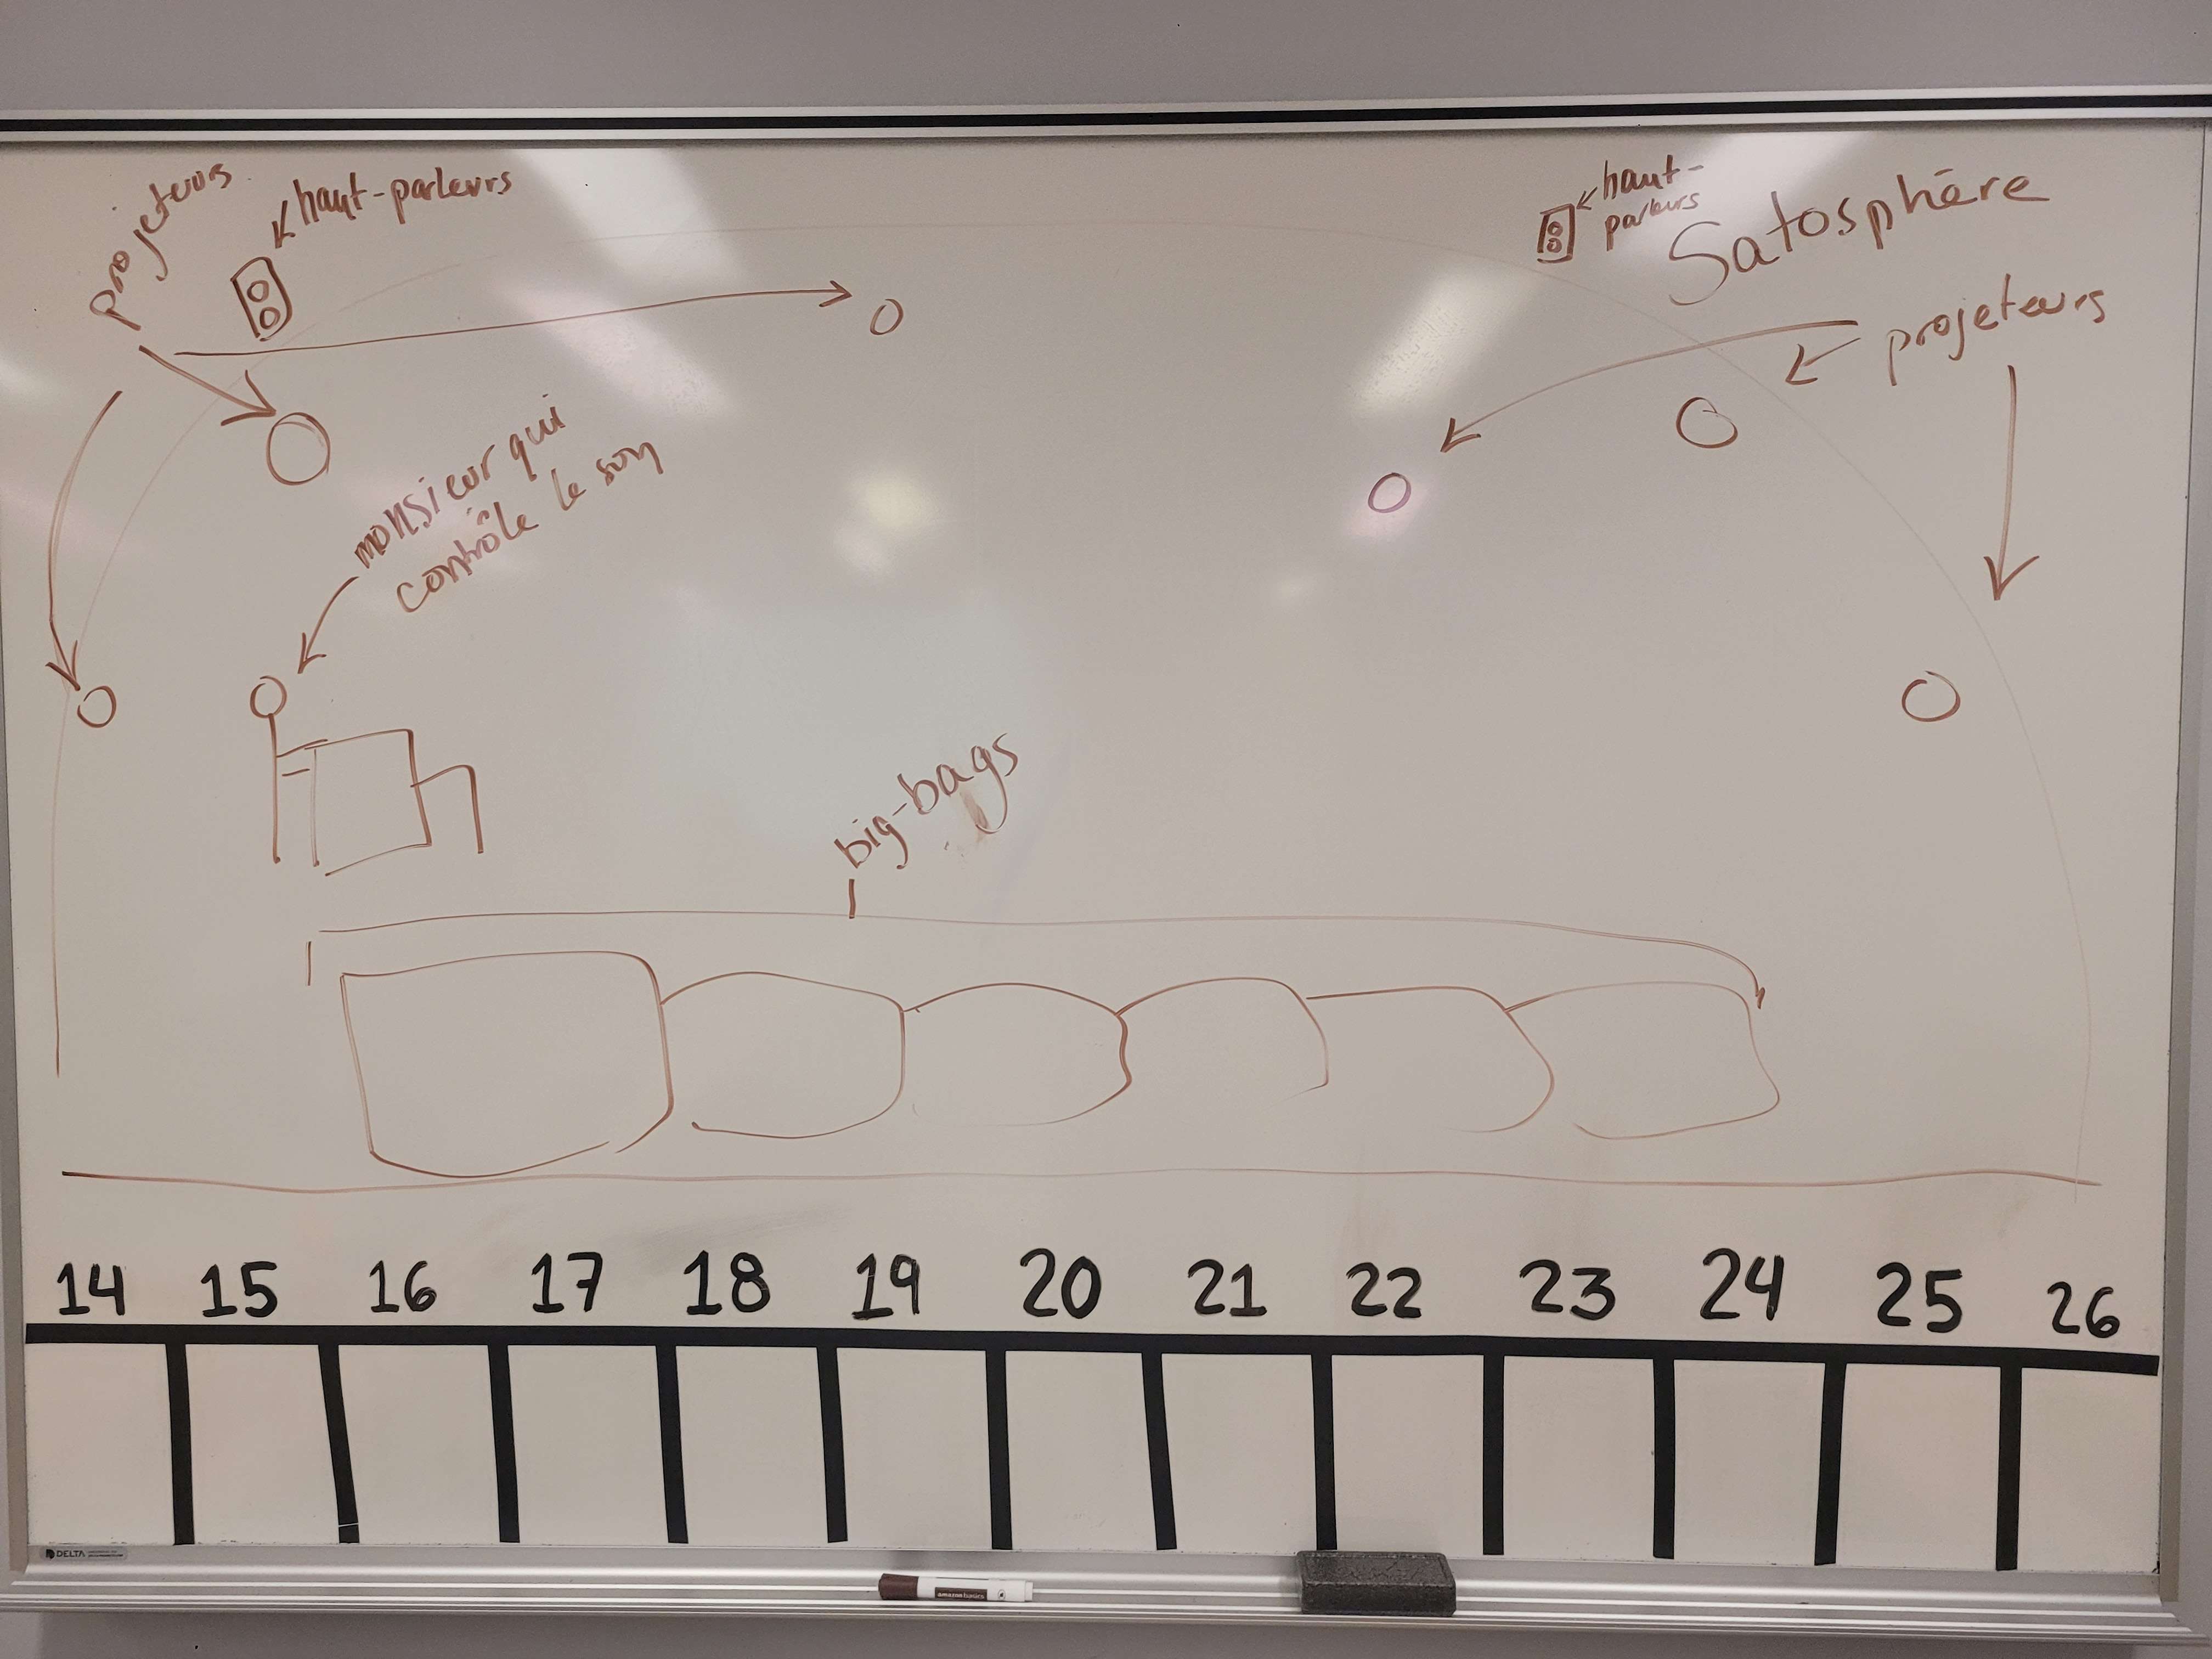 projeteurs
haut-parleurs
haut-
parleurs
Satosphère
projeteurs
monsieur qui
contrôle le son
big-bags
14 15 16 17 18 19 20 21 22 23 24 25 26
DELTA
amazonbasics